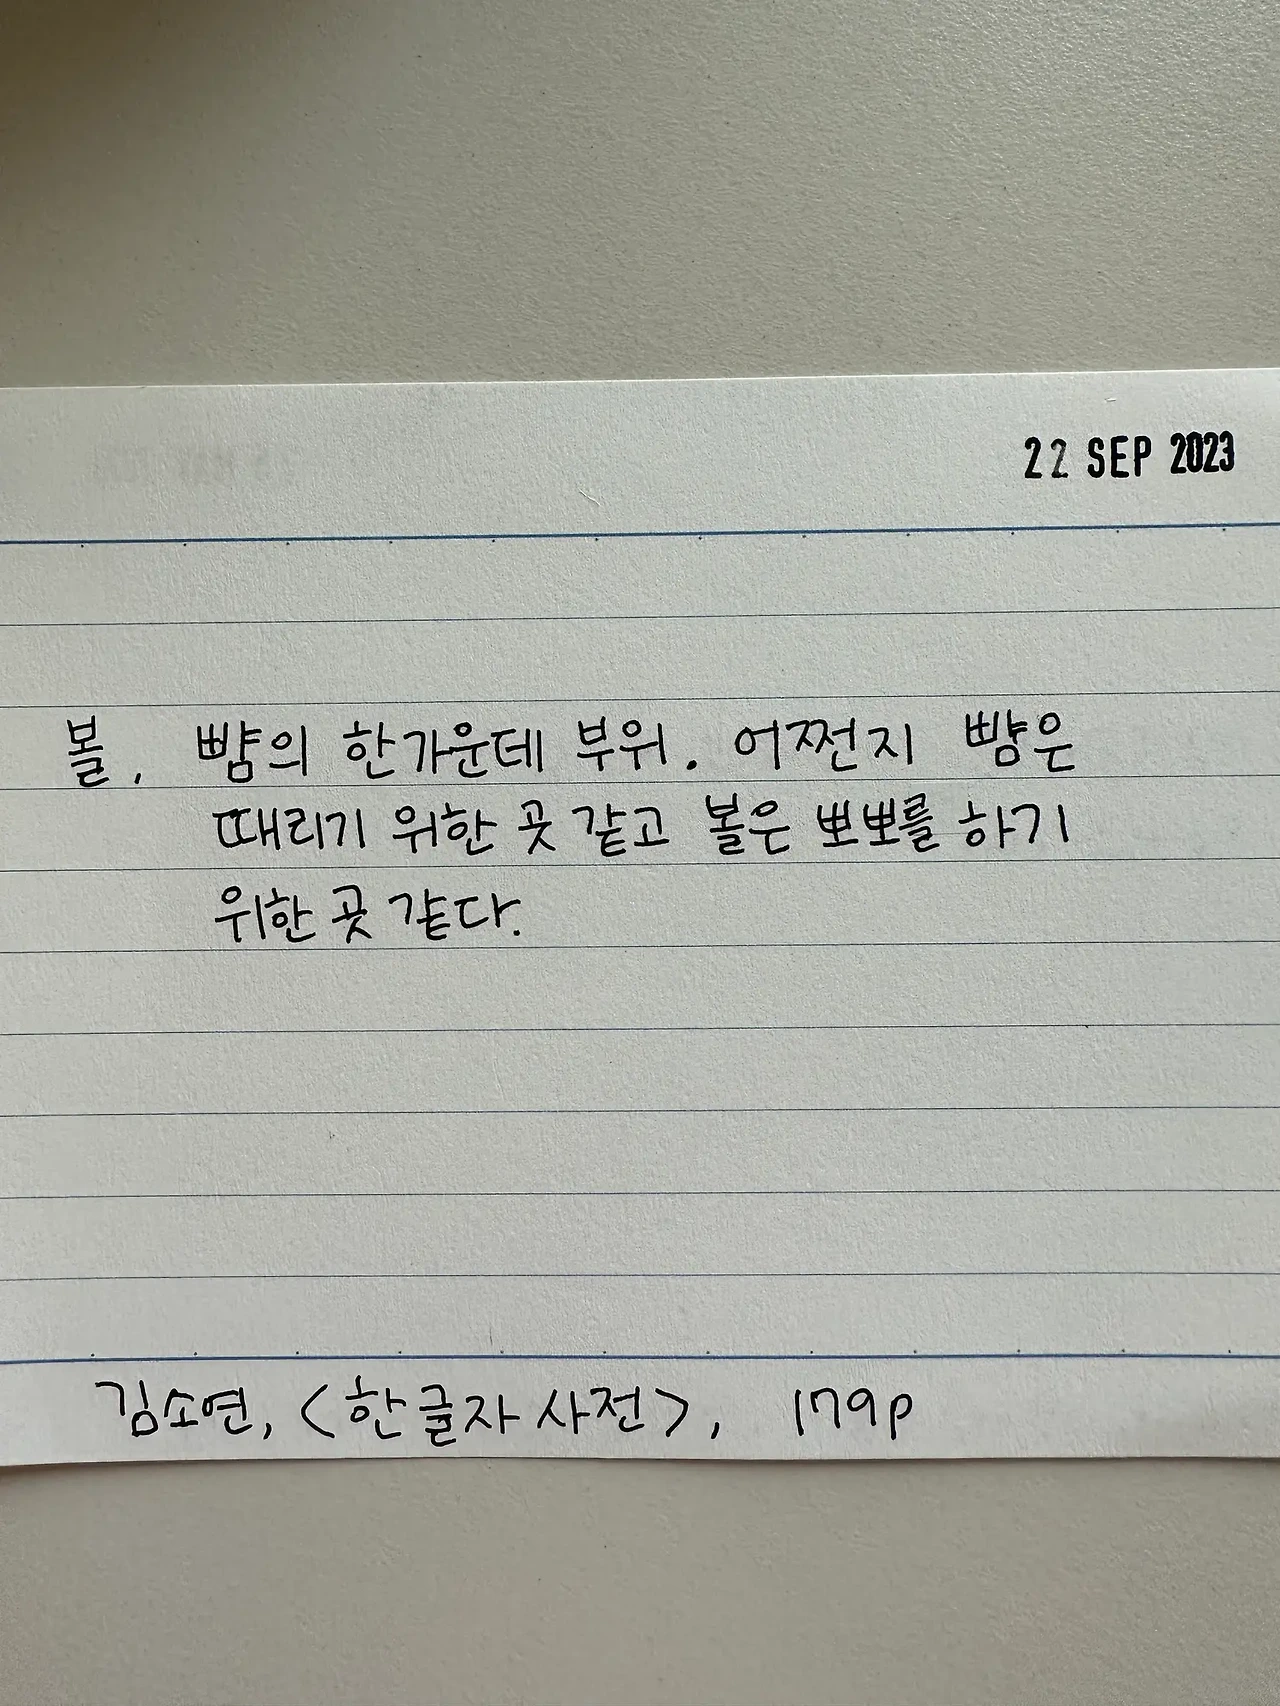 22 SEP 2023
볼, 뺨의 한가운데 부위. 어쩐지 뺨은
때리기 위한 곳 같고 볼은 뽀뽀를 하기
위한 곳 같다.
김소연, <한 글자 사전>, 179p